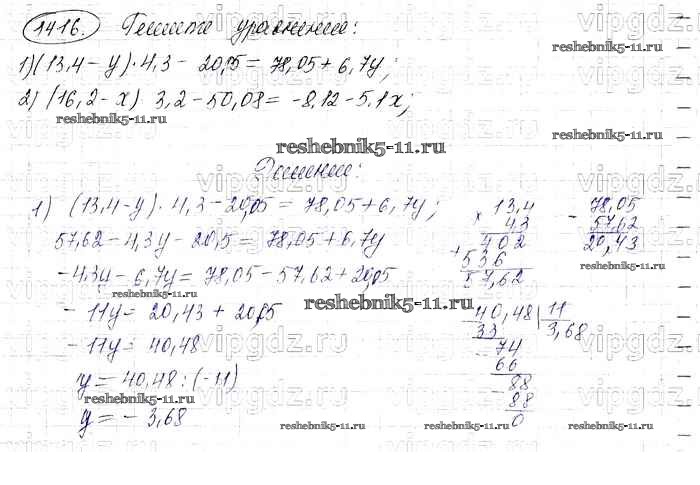 1416. Решите уравнение:
1) (13,4 - y) · 4,3 - 20,5 = 78,05 + 6,7y;
2) (16,2 - x) 3,2 - 50,08 = -8,12 - 5,1x;
reshebnik5-11.ru
reshebnik5-11.ru
reshebnik5-11.ru
Решение:
1) (13,4 - y) · 4,3 - 20,05 = 78,05 + 6,7y;
57,62 - 4,3y - 20,5 = 78,05 + 6,7y
-4,3y - 6,7y = 78,05 - 57,62 + 20,05
reshebnik5-11.ru
- 11y = 20,43 + 20,05
- 11y = 40,48
y = 40,48 : (-11)
y = - 3,68
reshebnik5-11.ru
13,4
× 4,3
402
+ 536
57,62
reshebnik5-11.ru
78,05
- 57,62
20,43
40,48 | 11
33 3,68
- 74
66
- 88
88
0
reshebnik5-11.ru
reshebnik5-11.ru
reshebnik5-11.ru
vipgdz.ru